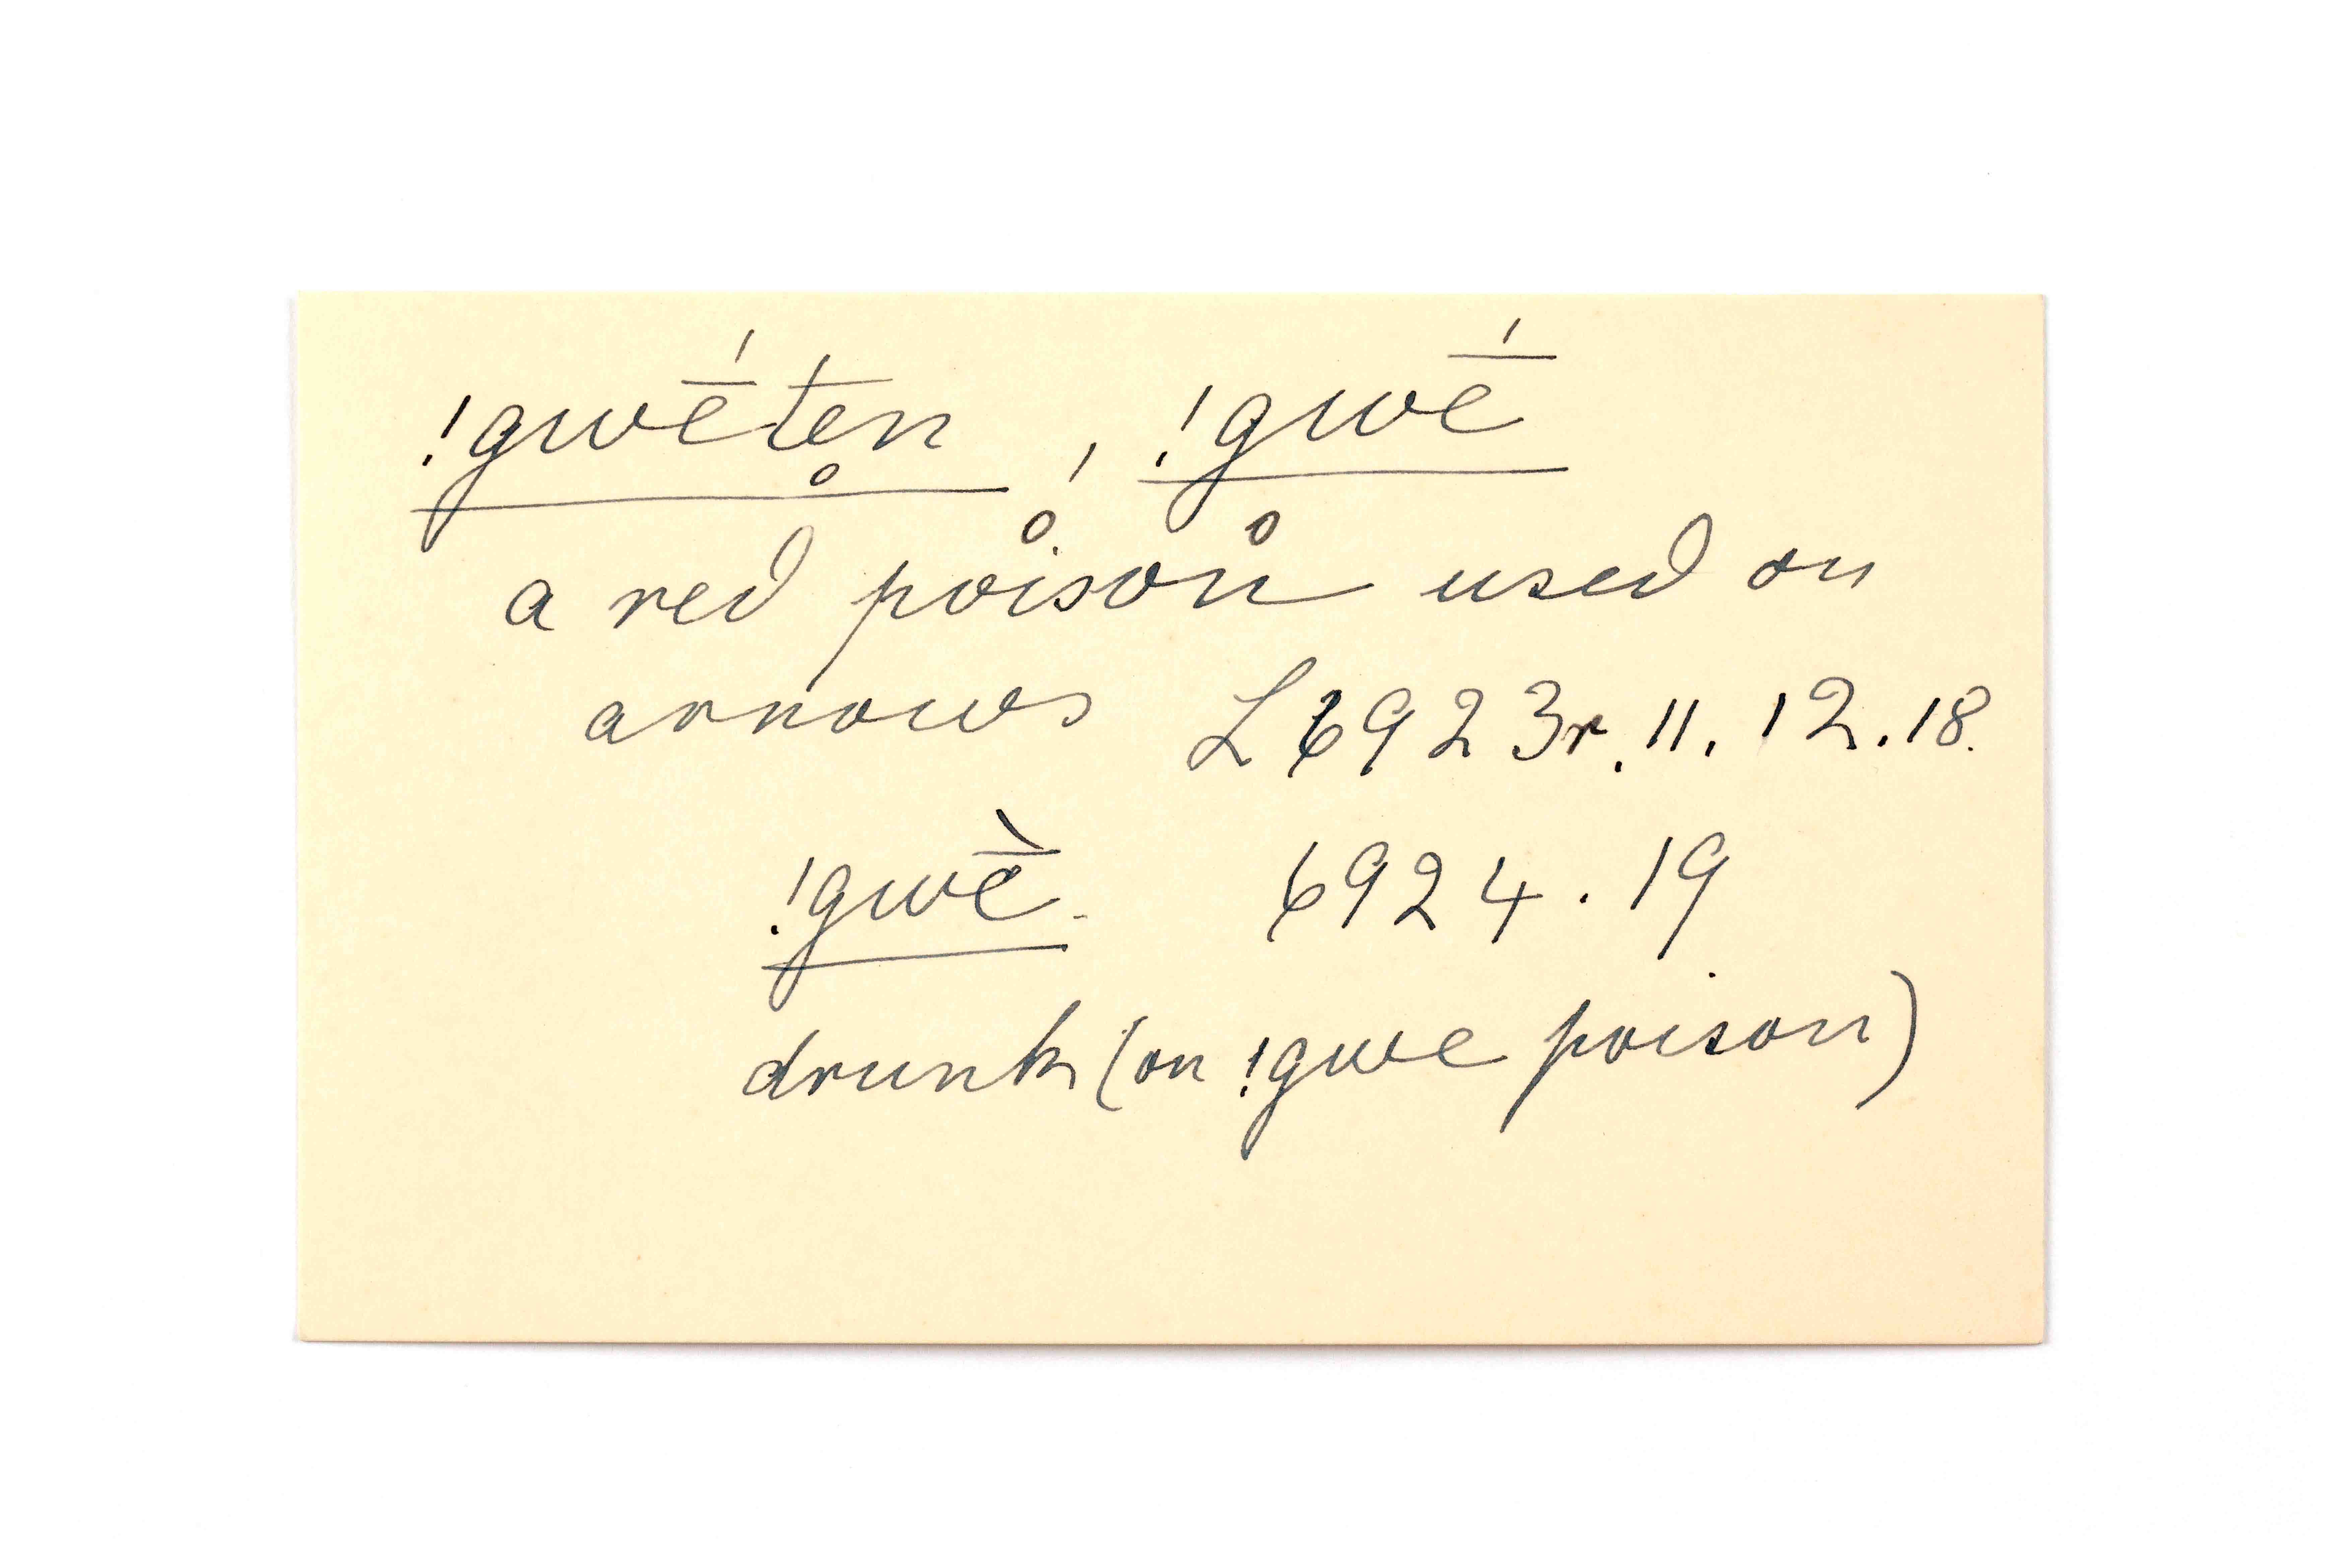 !gwḗte̥n, !gwḗ
a red poison used on
arrows L 6923r. 11. 12. 18.
!gwḕ- 6924. 19
drunk (on !gwe poison)